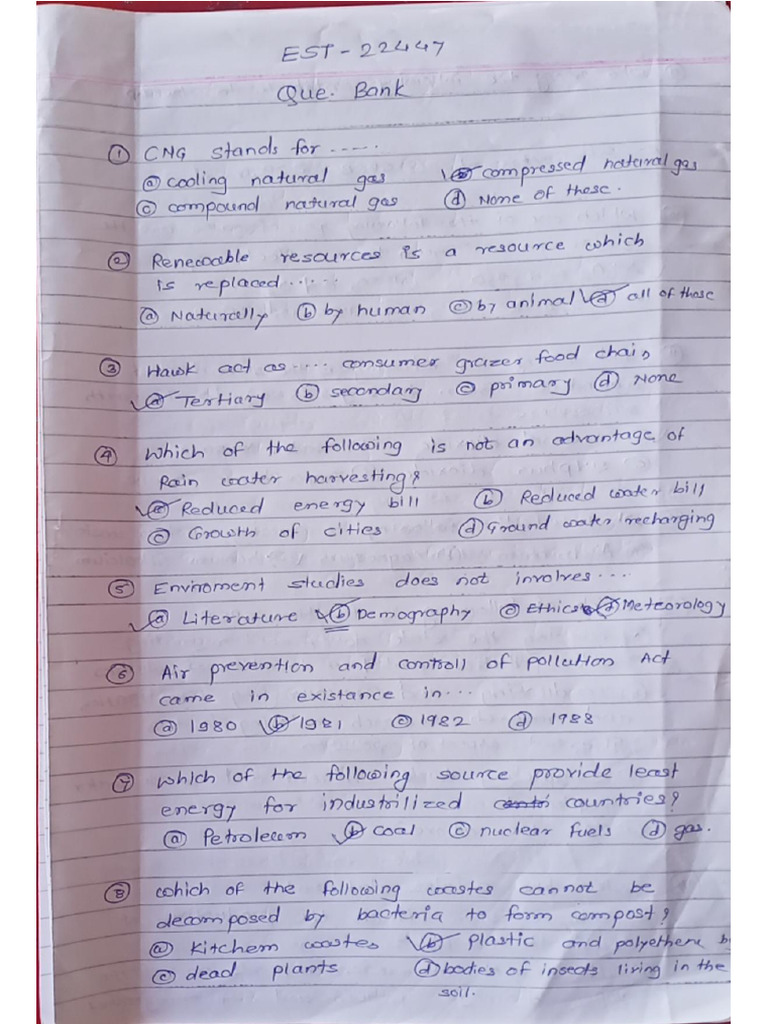 EST - 22447
Que. Bank
① CNG stands for -----.
ⓐ cooling natural gas ⓑ compressed natural gas
ⓒ compound natural gas ⓓ None of these.
② Renewable resources is a resource which
is replaced......
ⓐ Naturally ⓑ by human ⓒ by animal ⓓ all of these
③ Hawk act as .... consumer grazer food chain
ⓐ Tertiary ⓑ secondary ⓒ primary ⓓ None
④ Which of the following is not an advantage of
Rain water harvesting?
ⓐ Reduced energy bill ⓑ Reduced water bill
ⓒ Growth of cities ⓓ Ground water recharging
⑤ Enviroment studies does not involves...
ⓐ Literature ⓑ Demography ⓒ Ethics ⓓ Meteorology
⑥ Air prevention and controll of pollution Act
came in existance in...
ⓐ 1980 ⓑ 1981 ⓒ 1982 ⓓ 1988
⑦ which of the following source provide least
energy for industrilized countries?
ⓐ Petroleum ⓑ coal ⓒ nuclear fuels ⓓ gas.
⑧ which of the following wastes cannot be
decomposed by bacteria to form compost?
ⓐ Kitchem wastes ⓑ Plastic and polyethene b
ⓒ dead plants ⓓ bodies of insects living in the
soil.